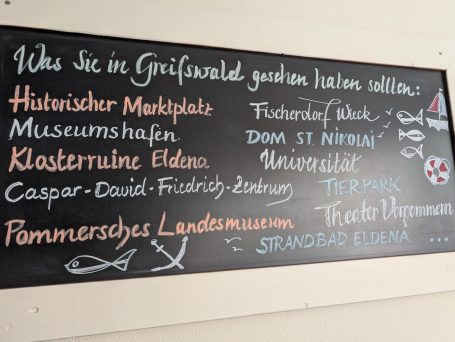 Was Sie in Greifswald gesehen haben sollten:
Historischer Marktplatz
Museumshafen
Klosterruine Eldena
Caspar-David-Friedrich-Zentrum
Pommersches Landesmuseum
Fischerdorf Wieck
DOM ST. NIKOLAI
Universität
TIERPARK
Theater Vorpommern
STRANDBAD ELDENA ...